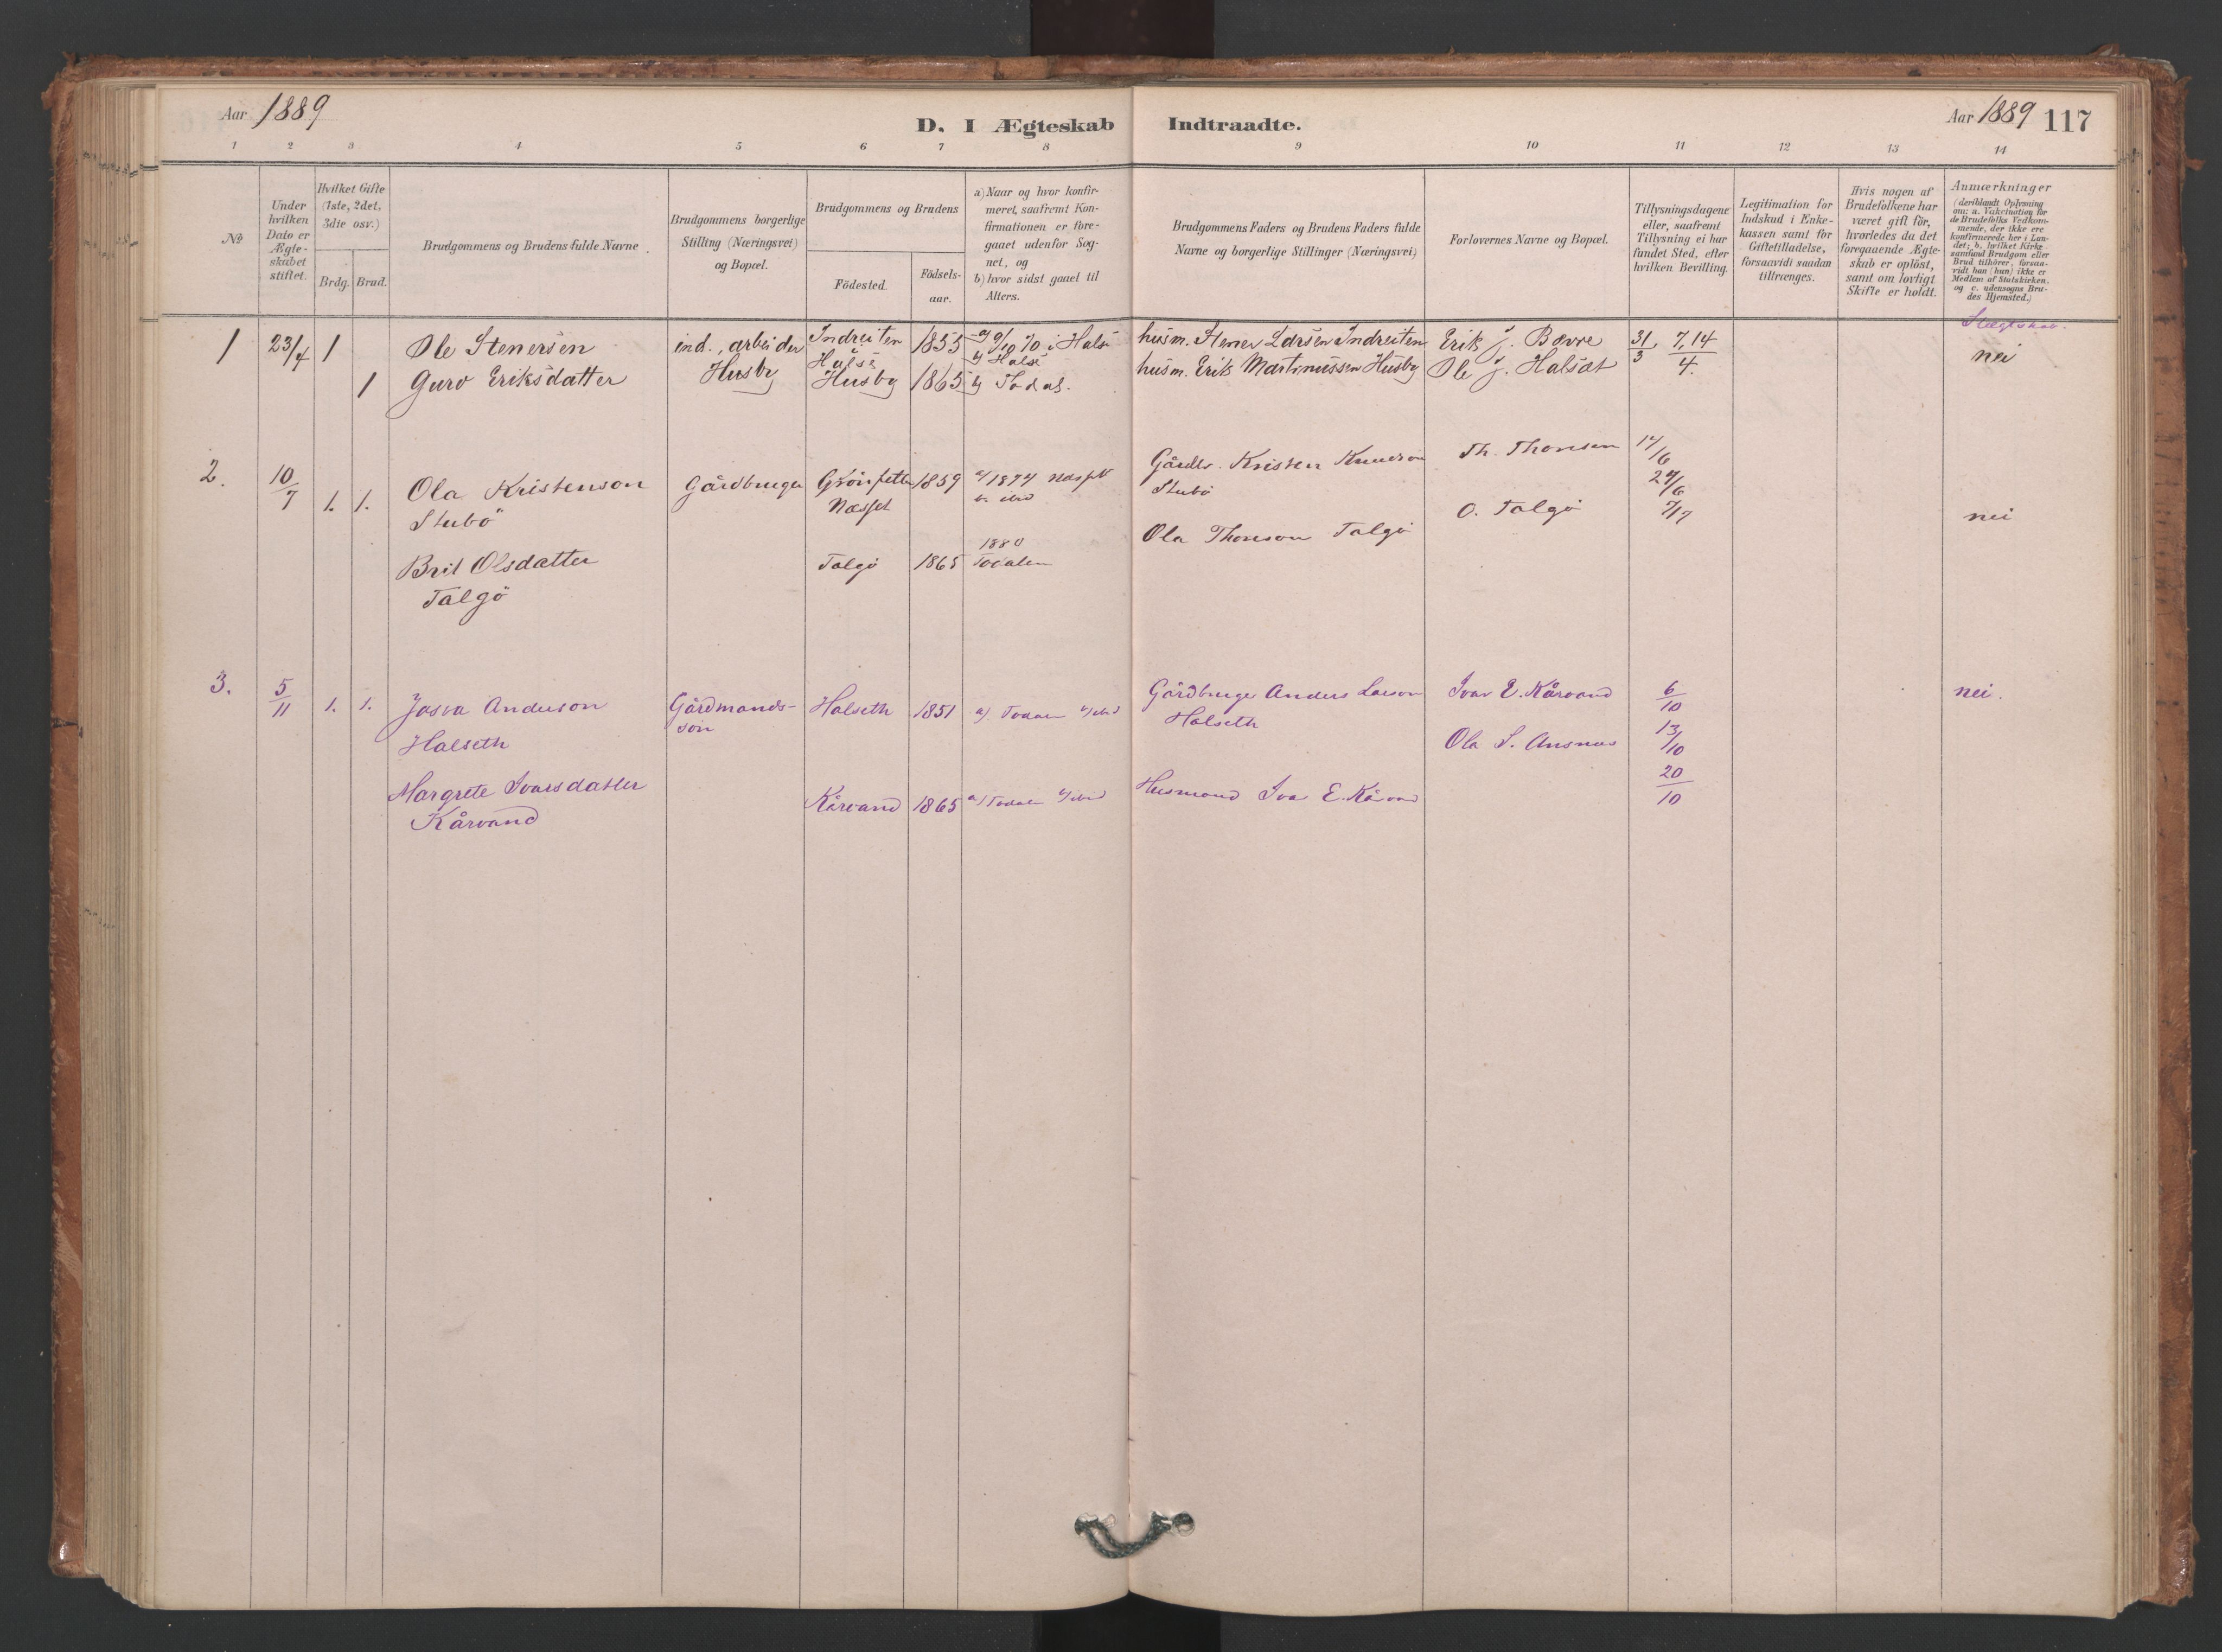 Aar 1889
D. I Ægteskab Indtraadte.
Aar 1889 117
1 2 3 4 5 6 7 8 9 10 11 12 13 14
No
Under
hvilken
Dato er
Ægte-
skabet
stiftet.
Hvilket Gifte
(1ste, 2det,
3die osv.)
Brdg. Brud.
Brudgommens og Brudens fulde Navne.
Brudgommens borgerlige
Stilling (Næringsvei)
og Bopæl.
Brudgommens og Brudens
Födested.
Födsels-
aar.
a) Naar og hvor konfir-
meret, saafremt Kon-
firmationen er fore-
gaaet udenfor Sog-
net, og
b) hvor sidst gaaet til
Alters.
Brudgommens Faders og Brudens Faders fulde
Navne og borgerlige Stillinger (Næringsvei)
Forlovernes Navne og Bopæl.
Tillysningsdagene
eller, saafremt
Tillysning ei har
fundet Sted, efter
hvilken Bevilling.
Legitimation for
Indskud i Enke-
kassen samt for
Giftetilladelse,
forsaavidt saadan
tiltrænges.
Hvis nogen af
Brudefolkene har
været gift för,
hvorledes da det
foregaaende Ægte-
skab er oplöst,
samt om lovligt
Skifte er holdt.
Anmærkninger
(deriblandt Oplysning
om: a. Vakcination for
de Brudefolks Vedkom-
mende, der ikke ere
konfirmerede her i Lan-
det; b. hvilket Kirke-
samfund Brudgom eller
Brud tilhörer, forsaa-
vidt han (hun) ikke er
Medlem af Statskirken,
og c. udensogns Bru-
des Hjemsted.)
Slægtskab.
1 23/4 1 Ole Stenersen ind., arbeider Indreiten 1855 a) 9/10 70 i Halse husm. Stener Larsen Indreiten Erik J. Bævre 31/3, 7, 14/4. nei
Husby Halse b) Halse
1 Guro Eriksdatter Husby 1865 b) Todal. husm. Erik Martinussen Husby Ole J. Halsæt
2. 10/7 1. 1. Ola Kristenson Gårdbruger 1859 a/ 1874 Nesset Gårdbr. Kristen Knudson Th. Thoresen
Stubö Nesset b. ibid Stubö
Brit Olsdatter Talgö 1865 1880 Todalen Ola Thoreson Talgö O. Talgö 7/7 nei
Talgö
3. 5/11 1. 1. Anderson Gårdmands- Halseth 1851 a) Todalen b) ibid Gårdbruger Anders Larson Ivar E. Kårvand 6/10 nei.
Halseth sön Halseth Ola S. 13/10
Margrete Ivarsdatter Kårvand 1865 a) Todalen b) ibid Husmand Ivar E. Kårvand 20/10
Kårvand